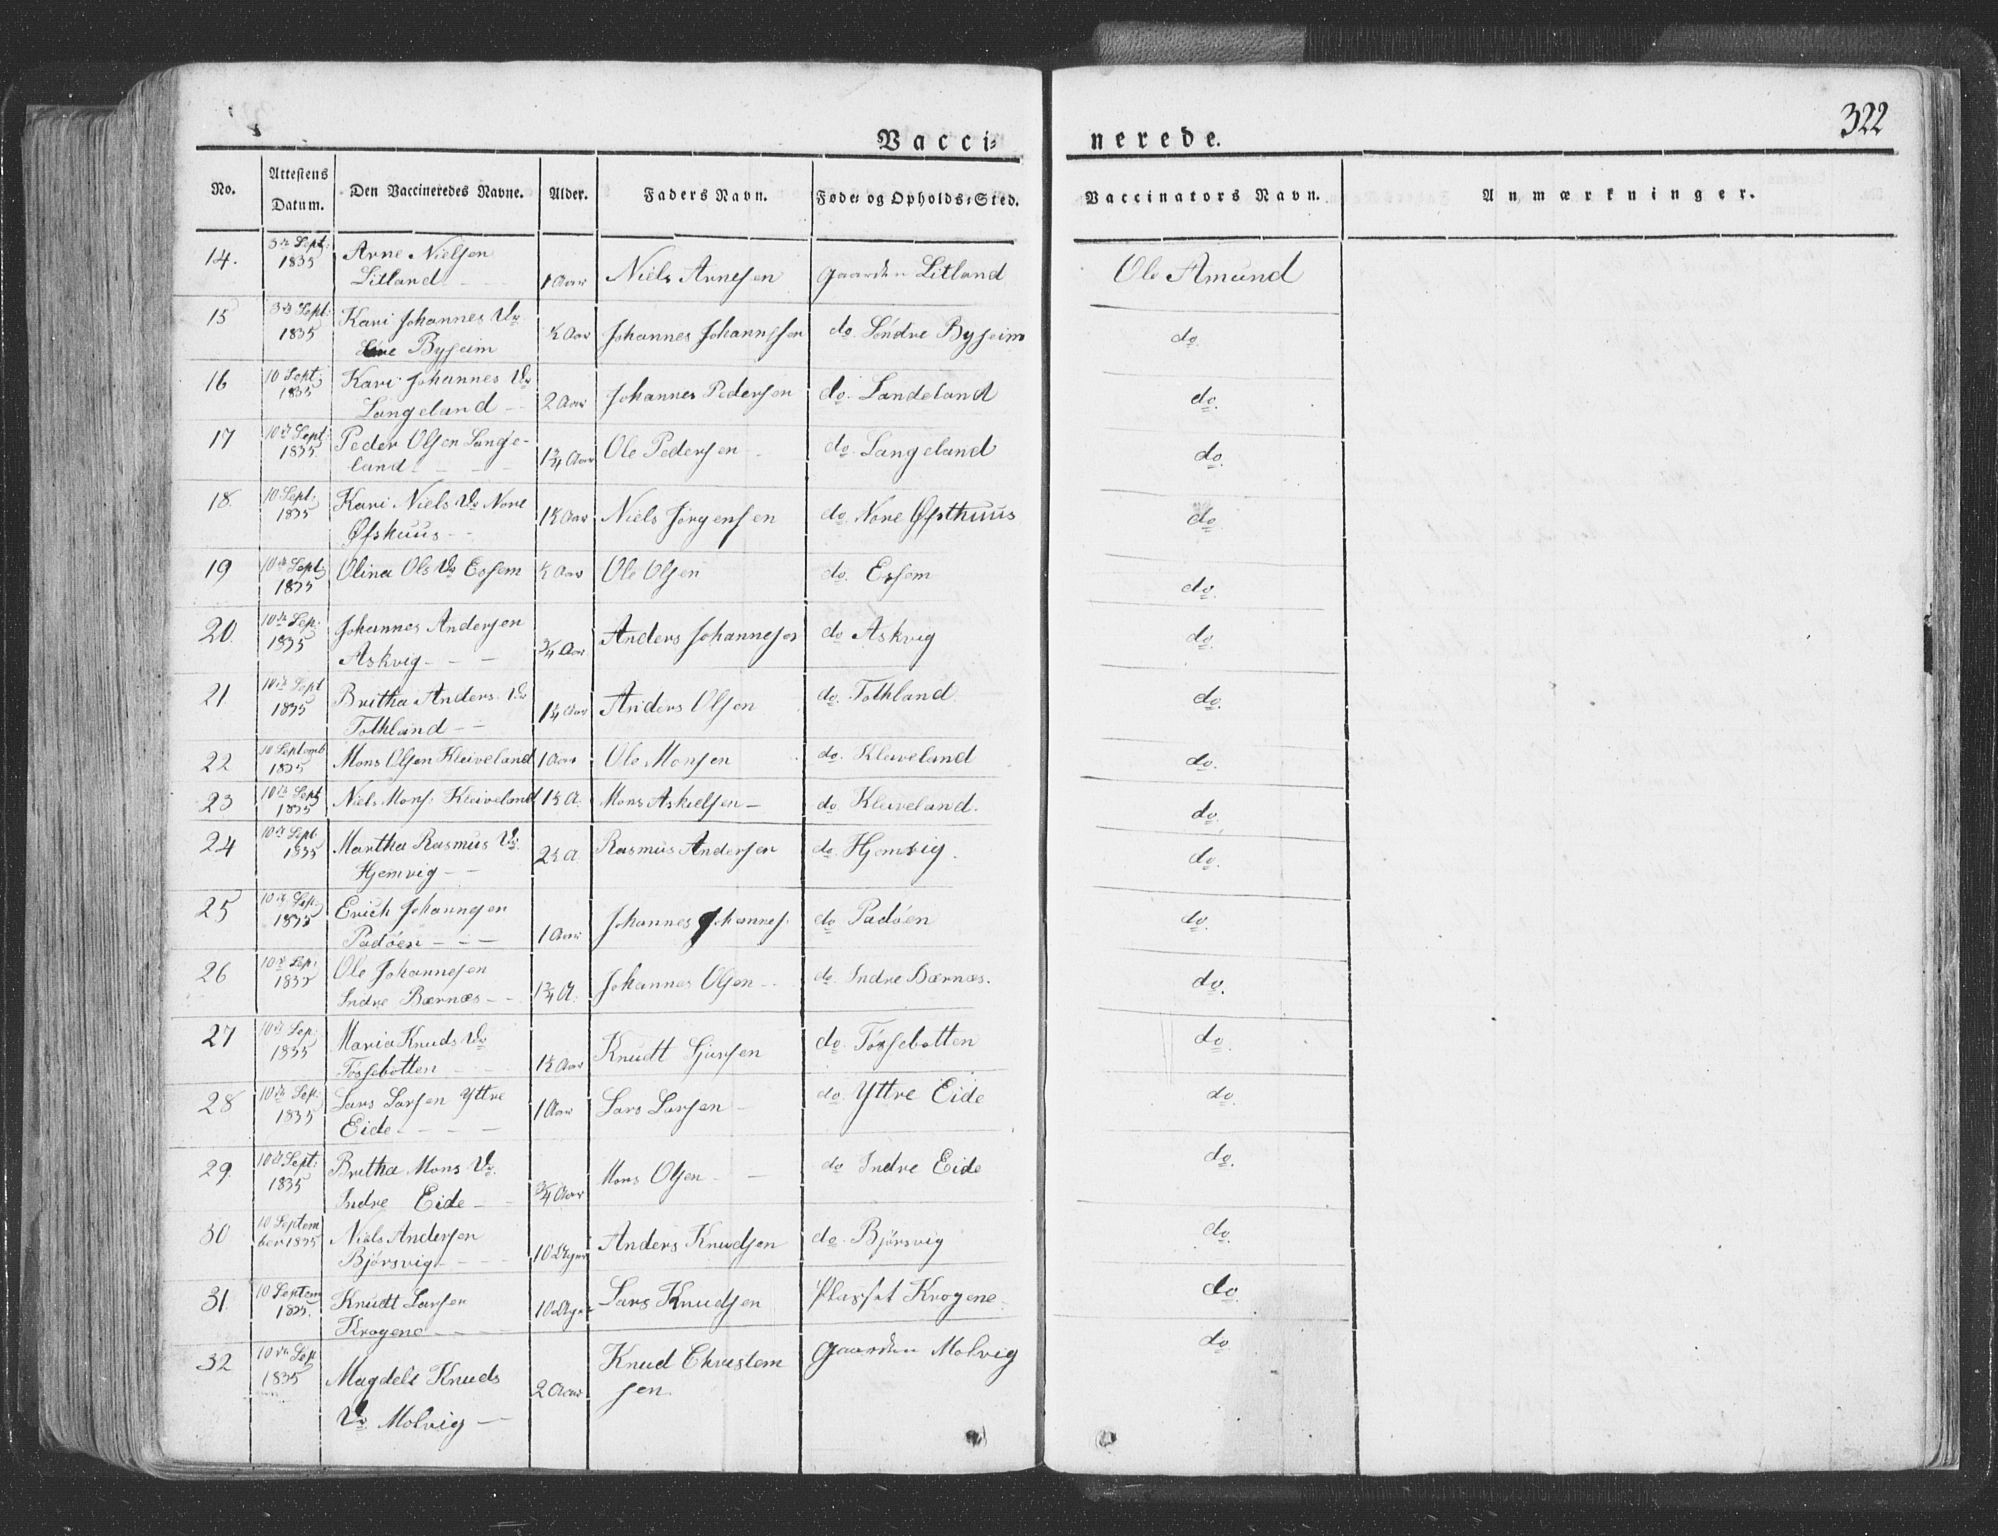 322
Vacci-
nerede.
No.
Attestens Datum.
Den Vaccineredes Navne.
Alder.
Faders Navn.
Føde- og Opholds-Sted.
Vaccinators Navn.
Anmærkninger.
14. 3die Sept: 1835 Arne Nielsen Litland 1 Aar Niels Arnesen gaarden Litland Ole Amund
15 3die Sept: 1835 Kari Johannes Dr. Byseim ½ Aar Johannes Johannssen do. Søndre Byseim do.
16 10 Sept. 1835 Kari Johannes Dr Langeland 2 Aar Johannes Pedersen do. Landeland do.
17 10de Sept 1835 Peder Olsen Lange- land 1¾ Aar Ole Pedersen do. Langeland do.
18. 10 Sept. 1835 Kari Niels Dr Nore Øfshuus 1½ Aar Niels Jørgensen do. Nore Øfsthuus do.
19 10de Sept 1835 Olina Ols Dr Essem ½ Aar Ole Olsen do. Essem do.
20. 10de Sep: 1835 Johannes Andersen Askvig ¾ Aar Anders Johannesen do Askvig do.
21. 10de Sept 1835 Britha Anders Dr Tothland 1¼ Aar Anders Olsen do. Tothland do.
22 10 Septemb 1835 Mons Olsen Kleiveland 1 Aar Ole Monsen do. Kleveland do.
23 10de Sept 1835 Niels Mons: Kleiveland 1½ A. Mons Askielsen do Kleiveland. do.
24 10de Sept. 1835 Martha Rasmus Dr. Hjemvig 2½ A. Rasmus Andersen do. Hjemvig. do.
25 10de Sep. 1835 Erich Johannesen Padøen 1 Aar Johannes Johannes. do Padøen do.
26 10de Sep. 1835 Ole Johannesen Indre Bærnæs 1¾ A. Johannes Olsen do Indre Bærnæs. do.
27 10de Sep. 1835 Maria Knuds Dr Tøssebotten 1½ Aar Knudt Sjursen do. Tøssebotten do.
28 10de Sep. 1835 Lars Larsen Yttre Eide 1 Aar Lars Larsen do. Yttre Eide do.
29. 10de Sept: 1835 Britha Mons Dr. Indre Eide ¾ Aar Mons Olsen do Indre Eide do.
30 10 Septem ber 1835 Niels Andersen Bjørsvig 10 Uger Anders Knudsen do. Bjørsvig do.
31. 10 Septem 1835. Knudt Larsen Krogene 10 Uger Lars Knudsen Plasset Krogene. do.
32 10de Sep 1835 Magdeli Knuds Dr Molvig 2 Aar Knud Christem sen. gaarden Molvig do